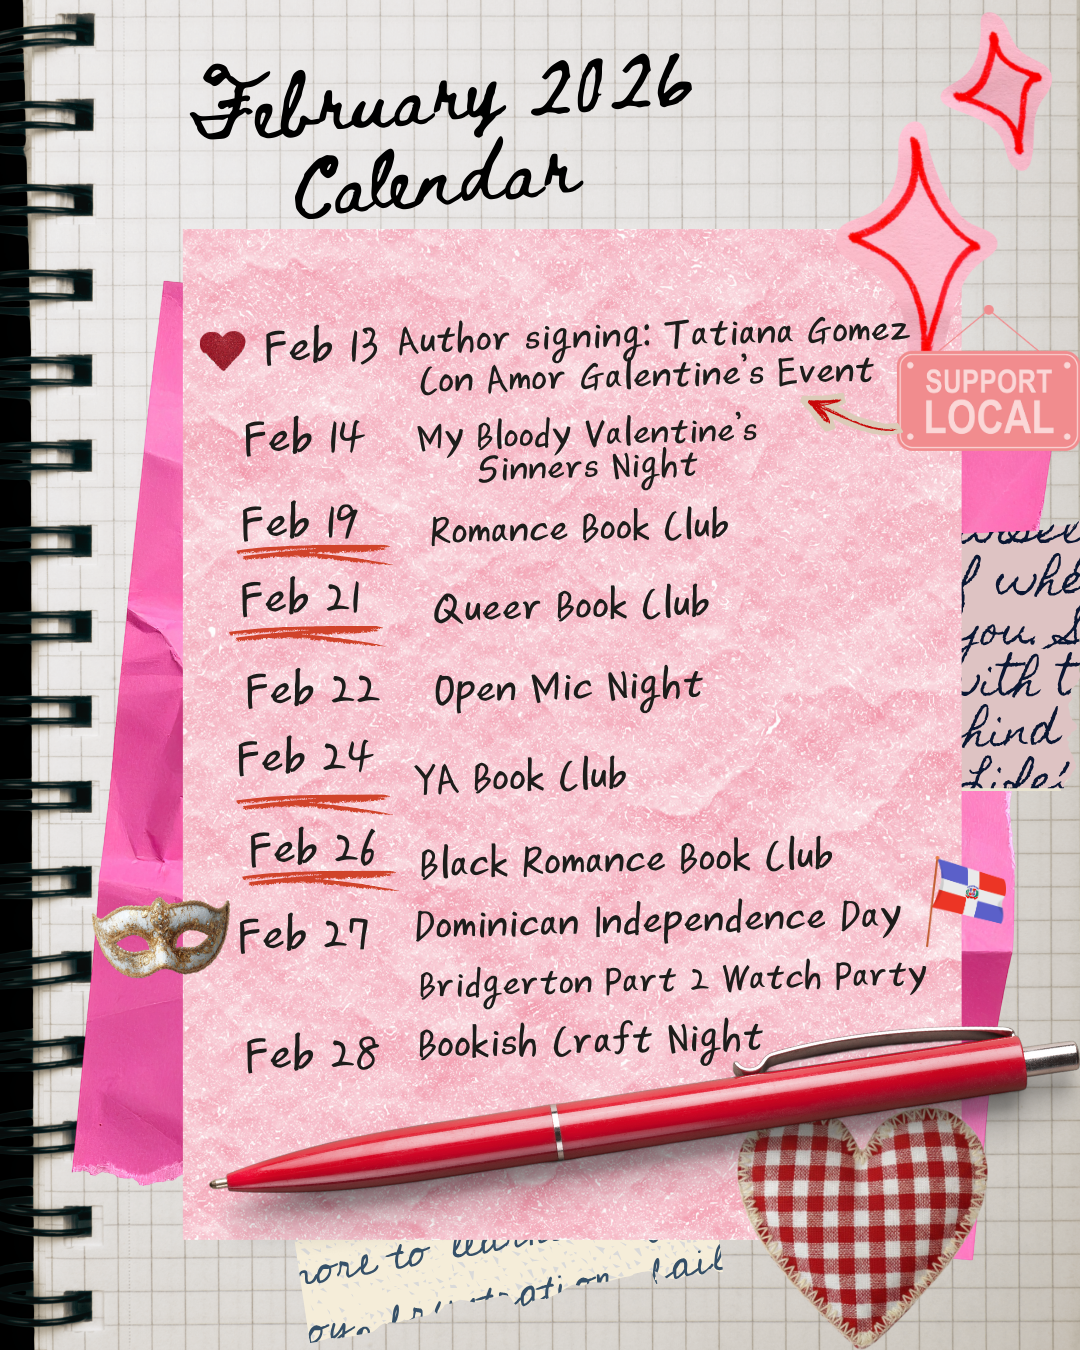 February 2026
Calendar
Feb 13 Author signing: Tatiana Gomez
Con Amor Galentine's Event
SUPPORT
LOCAL
Feb 14 My Bloody Valentine's
Sinners Night
Feb 19 Romance Book Club
Feb 21 Queer Book Club
Feb 22 Open Mic Night
Feb 24 YA Book Club
Feb 26 Black Romance Book Club
Feb 27 Dominican Independence Day
Bridgerton Part 2 Watch Party
Feb 28 Bookish Craft Night
you. S
with t
hind
more to